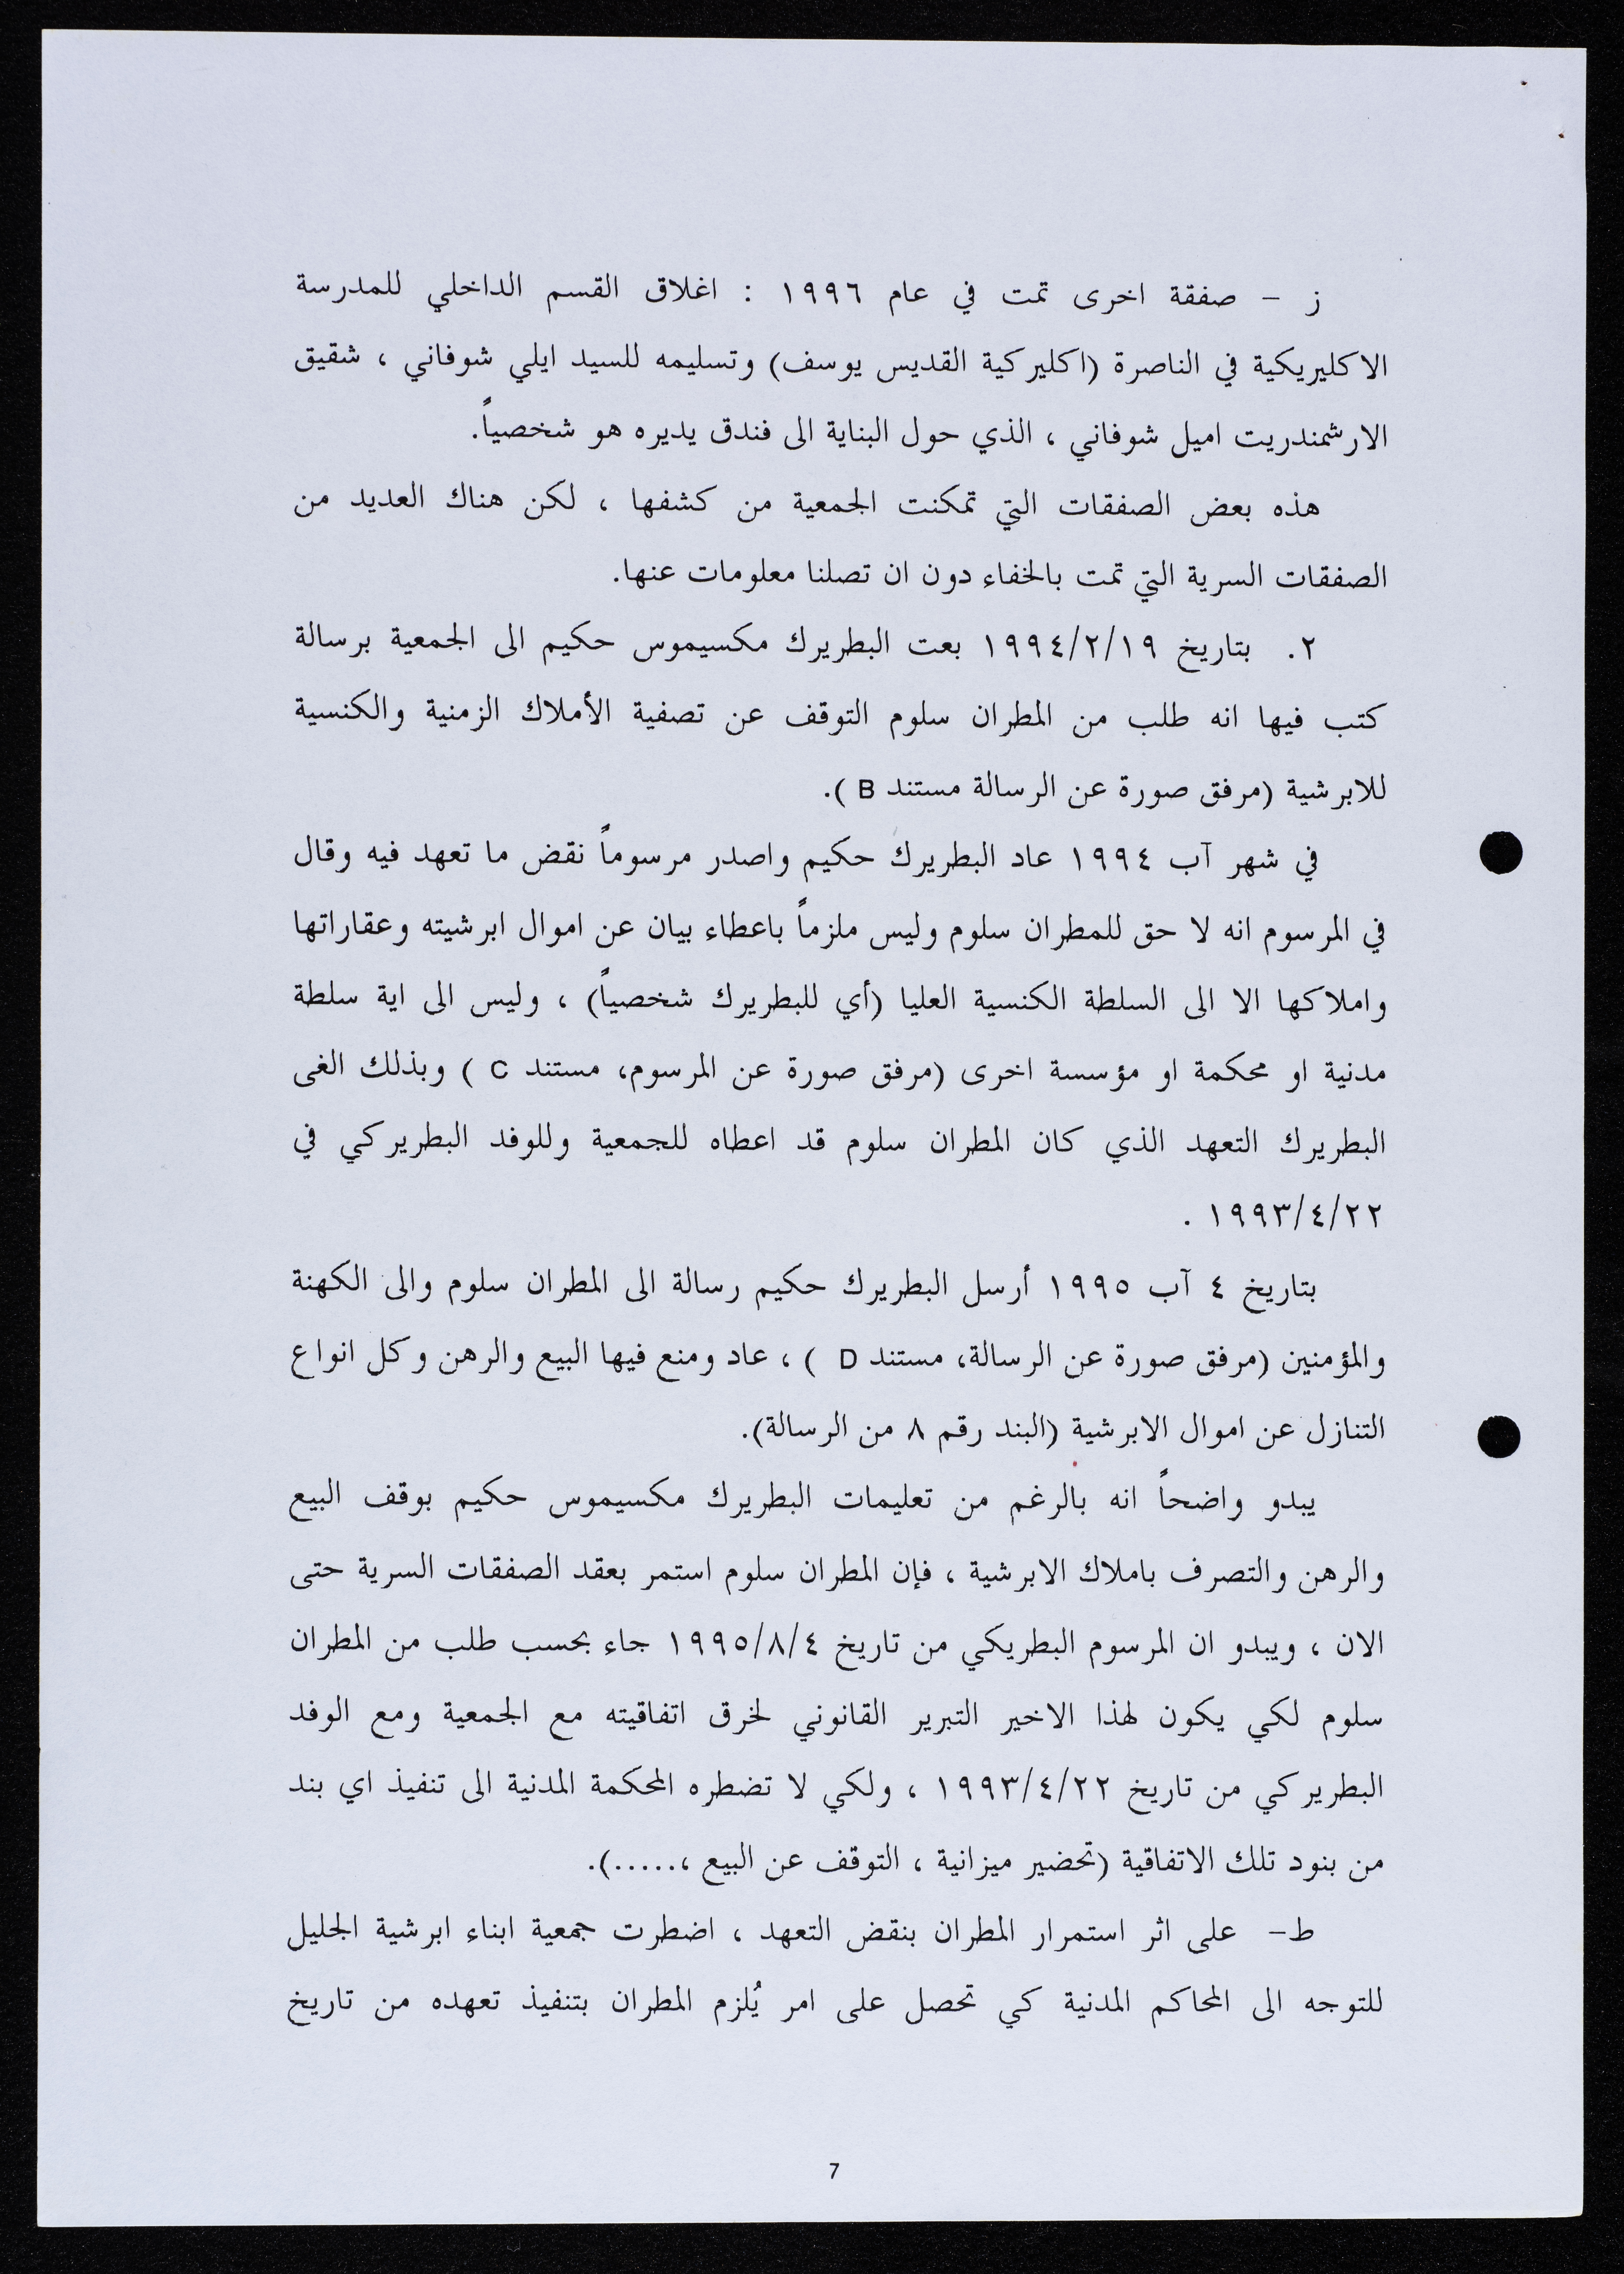 ز – صفقة اخرى تمت في عام ١٩٩٦ : اغلاق القسم الداخلي للمدرسة
الاكليريكية في الناصرة (اكليركية القديس يوسف) وتسليمه للسيد ايلي شوفاني ، شقيق
الارشمندريت اميل شوفاني ، الذي حول البناية الى فندق يديره هو شخصياً.
هذه بعض الصفقات التي تمكنت الجمعية من كشفها ، لكن هناك العديد من
الصفقات السرية التي تمت بالخفاء دون ان تصلنا معلومات عنها.
٢. بتاريخ ١٩٩٤/٢/١٩ بعت البطريرك مكسيموس حكيم الى الجمعية برسالة
كتب فيها انه طلب من المطران سلوم التوقف عن تصفية الأملاك الزمنية والكنسية
للابرشية (مرفق صورة عن الرسالة مستند B ).
في شهر آب ١٩٩٤ عاد البطريرك حكيم واصدر مرسوماً نقض ما تعهد فيه وقال
في المرسوم انه لا حق للمطران سلوم وليس ملزماً باعطاء بيان عن اموال ابرشيته وعقاراتها
واملاكها الا الى السلطة الكنسية العليا (أي للبطريرك شخصياً) ، وليس الى اية سلطة
مدنية او محكمة او مؤسسة اخرى (مرفق صورة عن المرسوم، مستند C ) وبذلك الغى
البطريرك التعهد الذي كان المطران سلوم قد اعطاه للجمعية وللوفد البطريركي في
١٩٩٣/٤/٢٢ .
بتاريخ ٤ آب ١٩٩٥ أرسل البطريرك حكيم رسالة الى المطران سلوم والى الكهنة
والمؤمنين (مرفق صورة عن الرسالة، مستند D ) ، عاد ومنع فيها البيع والرهن وكل انواع
التنازل عن اموال الابرشية (البند رقم ٨ من الرسالة).
يبدو واضحاً انه بالرغم من تعليمات البطريرك مكسيموس حكيم بوقف البيع
والرهن والتصرف باملاك الابرشية ، فإن المطران سلوم استمر بعقد الصفقات السرية حتى
الان ، ويبدو ان المرسوم البطريكي من تاريخ ١٩٩٥/٨/٤ جاء بحسب طلب من المطران
سلوم لكي يكون لهذا الاخير التبرير القانوني لخرق اتفاقيته مع الجمعية ومع الوفد
البطريركي من تاريخ ١٩٩٣/٤/٢٢ ، ولكي لا تضطره المحكمة المدنية الى تنفيذ اي بند
من بنود تلك الاتفاقية (تحضير ميزانية ، التوقف عن البيع ،.....).
ط– على اثر استمرار المطران بنقض التعهد ، اضطرت جمعية ابناء ابرشية الجليل
للتوجه الى المحاكم المدنية كي تحصل على امر يُلزم المطران بتنفيذ تعهده من تاريخ
7